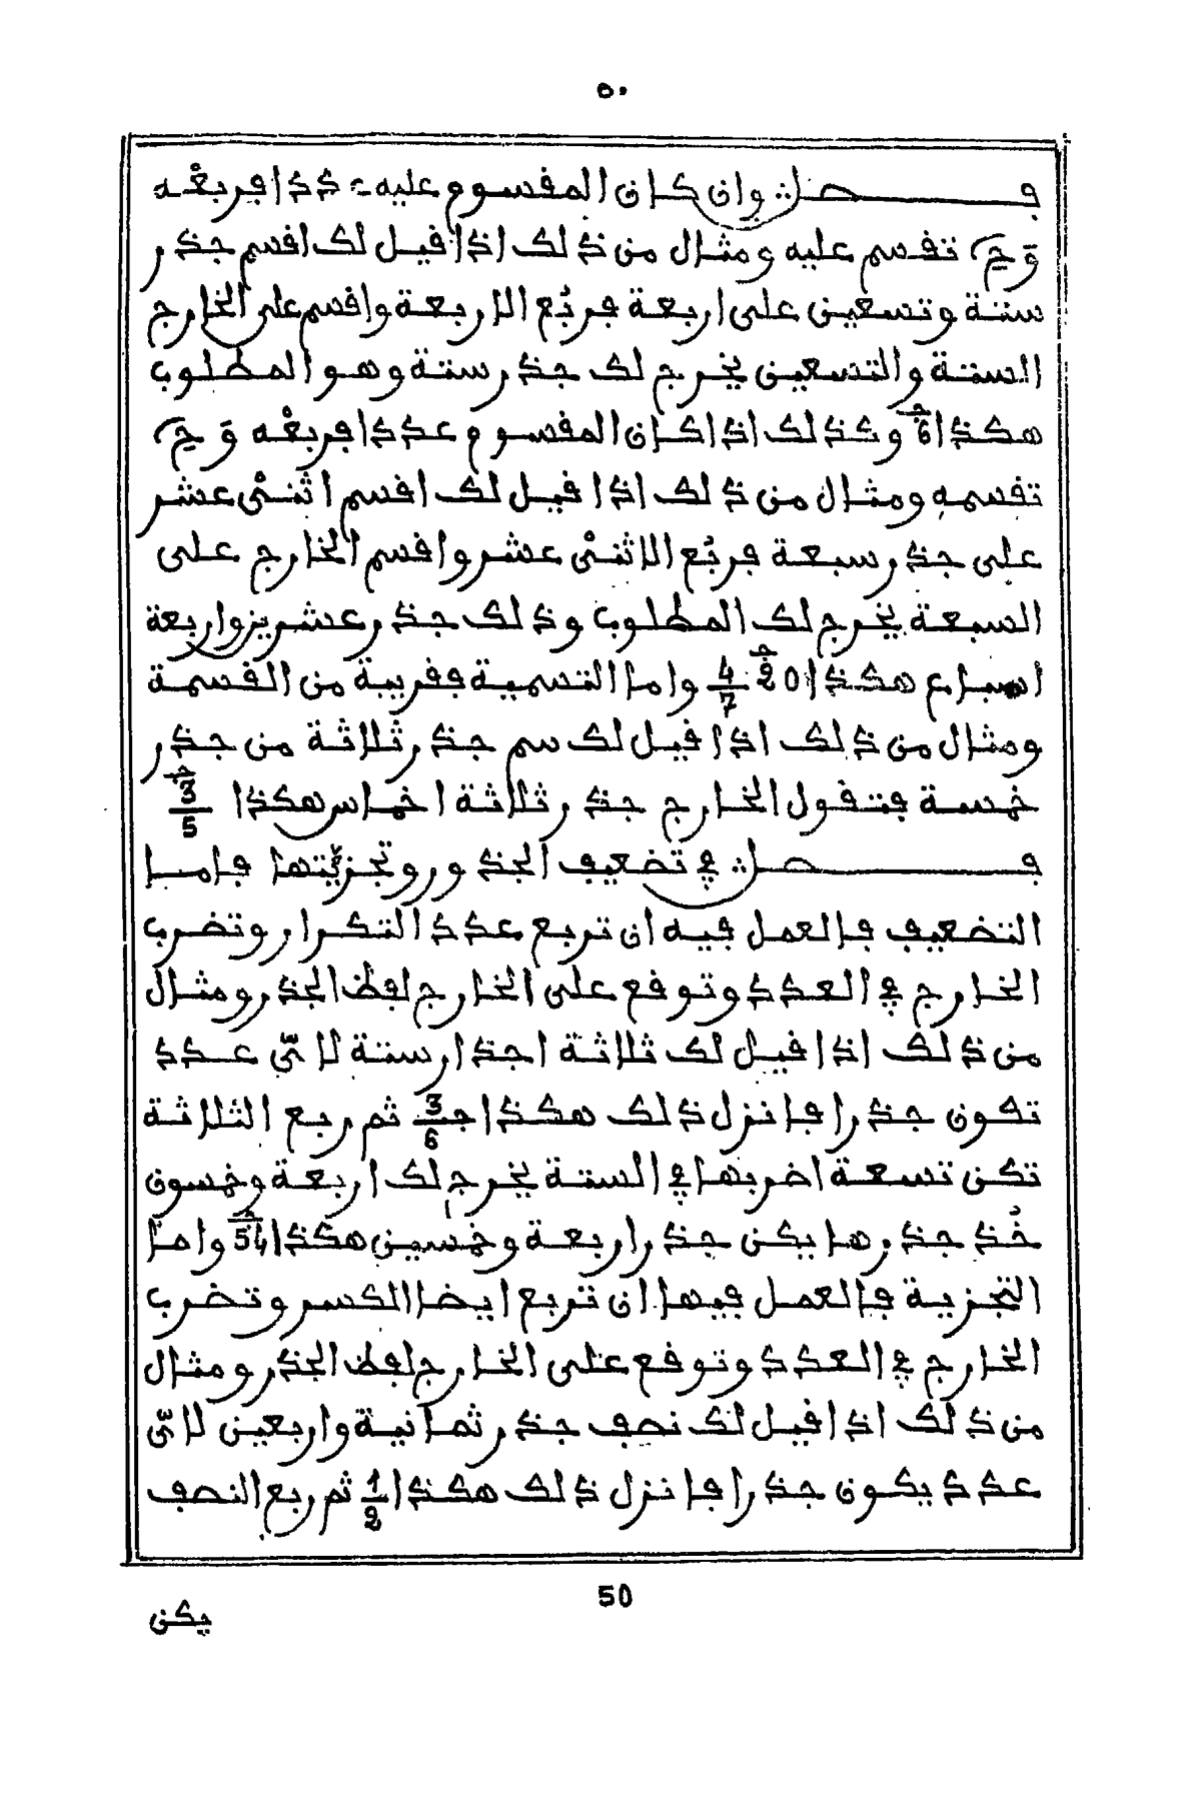 ٥٠
فصل وان كان المقسوم عليه عددا فربعْه
وَحِ تقسم عليه ومثال من ذلك اذا قيل لك اقسم جذر
ستة وتسعين على اربعة فربّع الاربعة واقسم على الخارج
الستة والتسعين يخرج لك جذر ستة وهو المطلوب
هكذا 6 وكذلك اذا كان المقسوم عددا فربعْه وَحِ
تقسمه ومثال من ذلك اذا قيل لك اقسم اثنىْ عشر
على جذر سبعة فربّع الاثنىْ عشر واقسم الخارج على
السبعة يخرج لك المطلوب وذلك جذر عشرين واربعة
اسباع هكذا 20 4/7 واما التسمية فقريبة من القسمة
ومثال من ذلك اذا قيل لك سم جذر ثلاثة من جذر
خمسة فتقول الخارج جذر ثلاثة اخماس هكذا 3/5
فصل في تضعيف الجذور وتجزيتها فاما
التضعيف فالعمل فيه ان تربع عدد التكرار وتضرب
الخارج في العدد وتوقع على الخارج لفظ الجذر ومثال
من ذلك اذا قيل لك ثلاثة اجذار ستة لاىّ عدد
تكون جذرا فانزل ذلك هكذا جـ 3/6 ثم ربع الثلاثة
تكن تسعة اضربها في الستة يخرج لك اربعة وخمسون
خُذ جذرها يكن جذر اربعة وخمسين هكذا 54 واما
التجزية فالعمل فيها ان تربع ايضا الكسر وتضرب
الخارج في العدد وتوقع على الخارج لفظ الجذر ومثال
من ذلك اذا قيل لك نصف جذر ثمانية واربعين لاىّ
عدد يكون جذرا فانزل ذلك هكذا 1/2 ثم ربع النصف
50
يكن